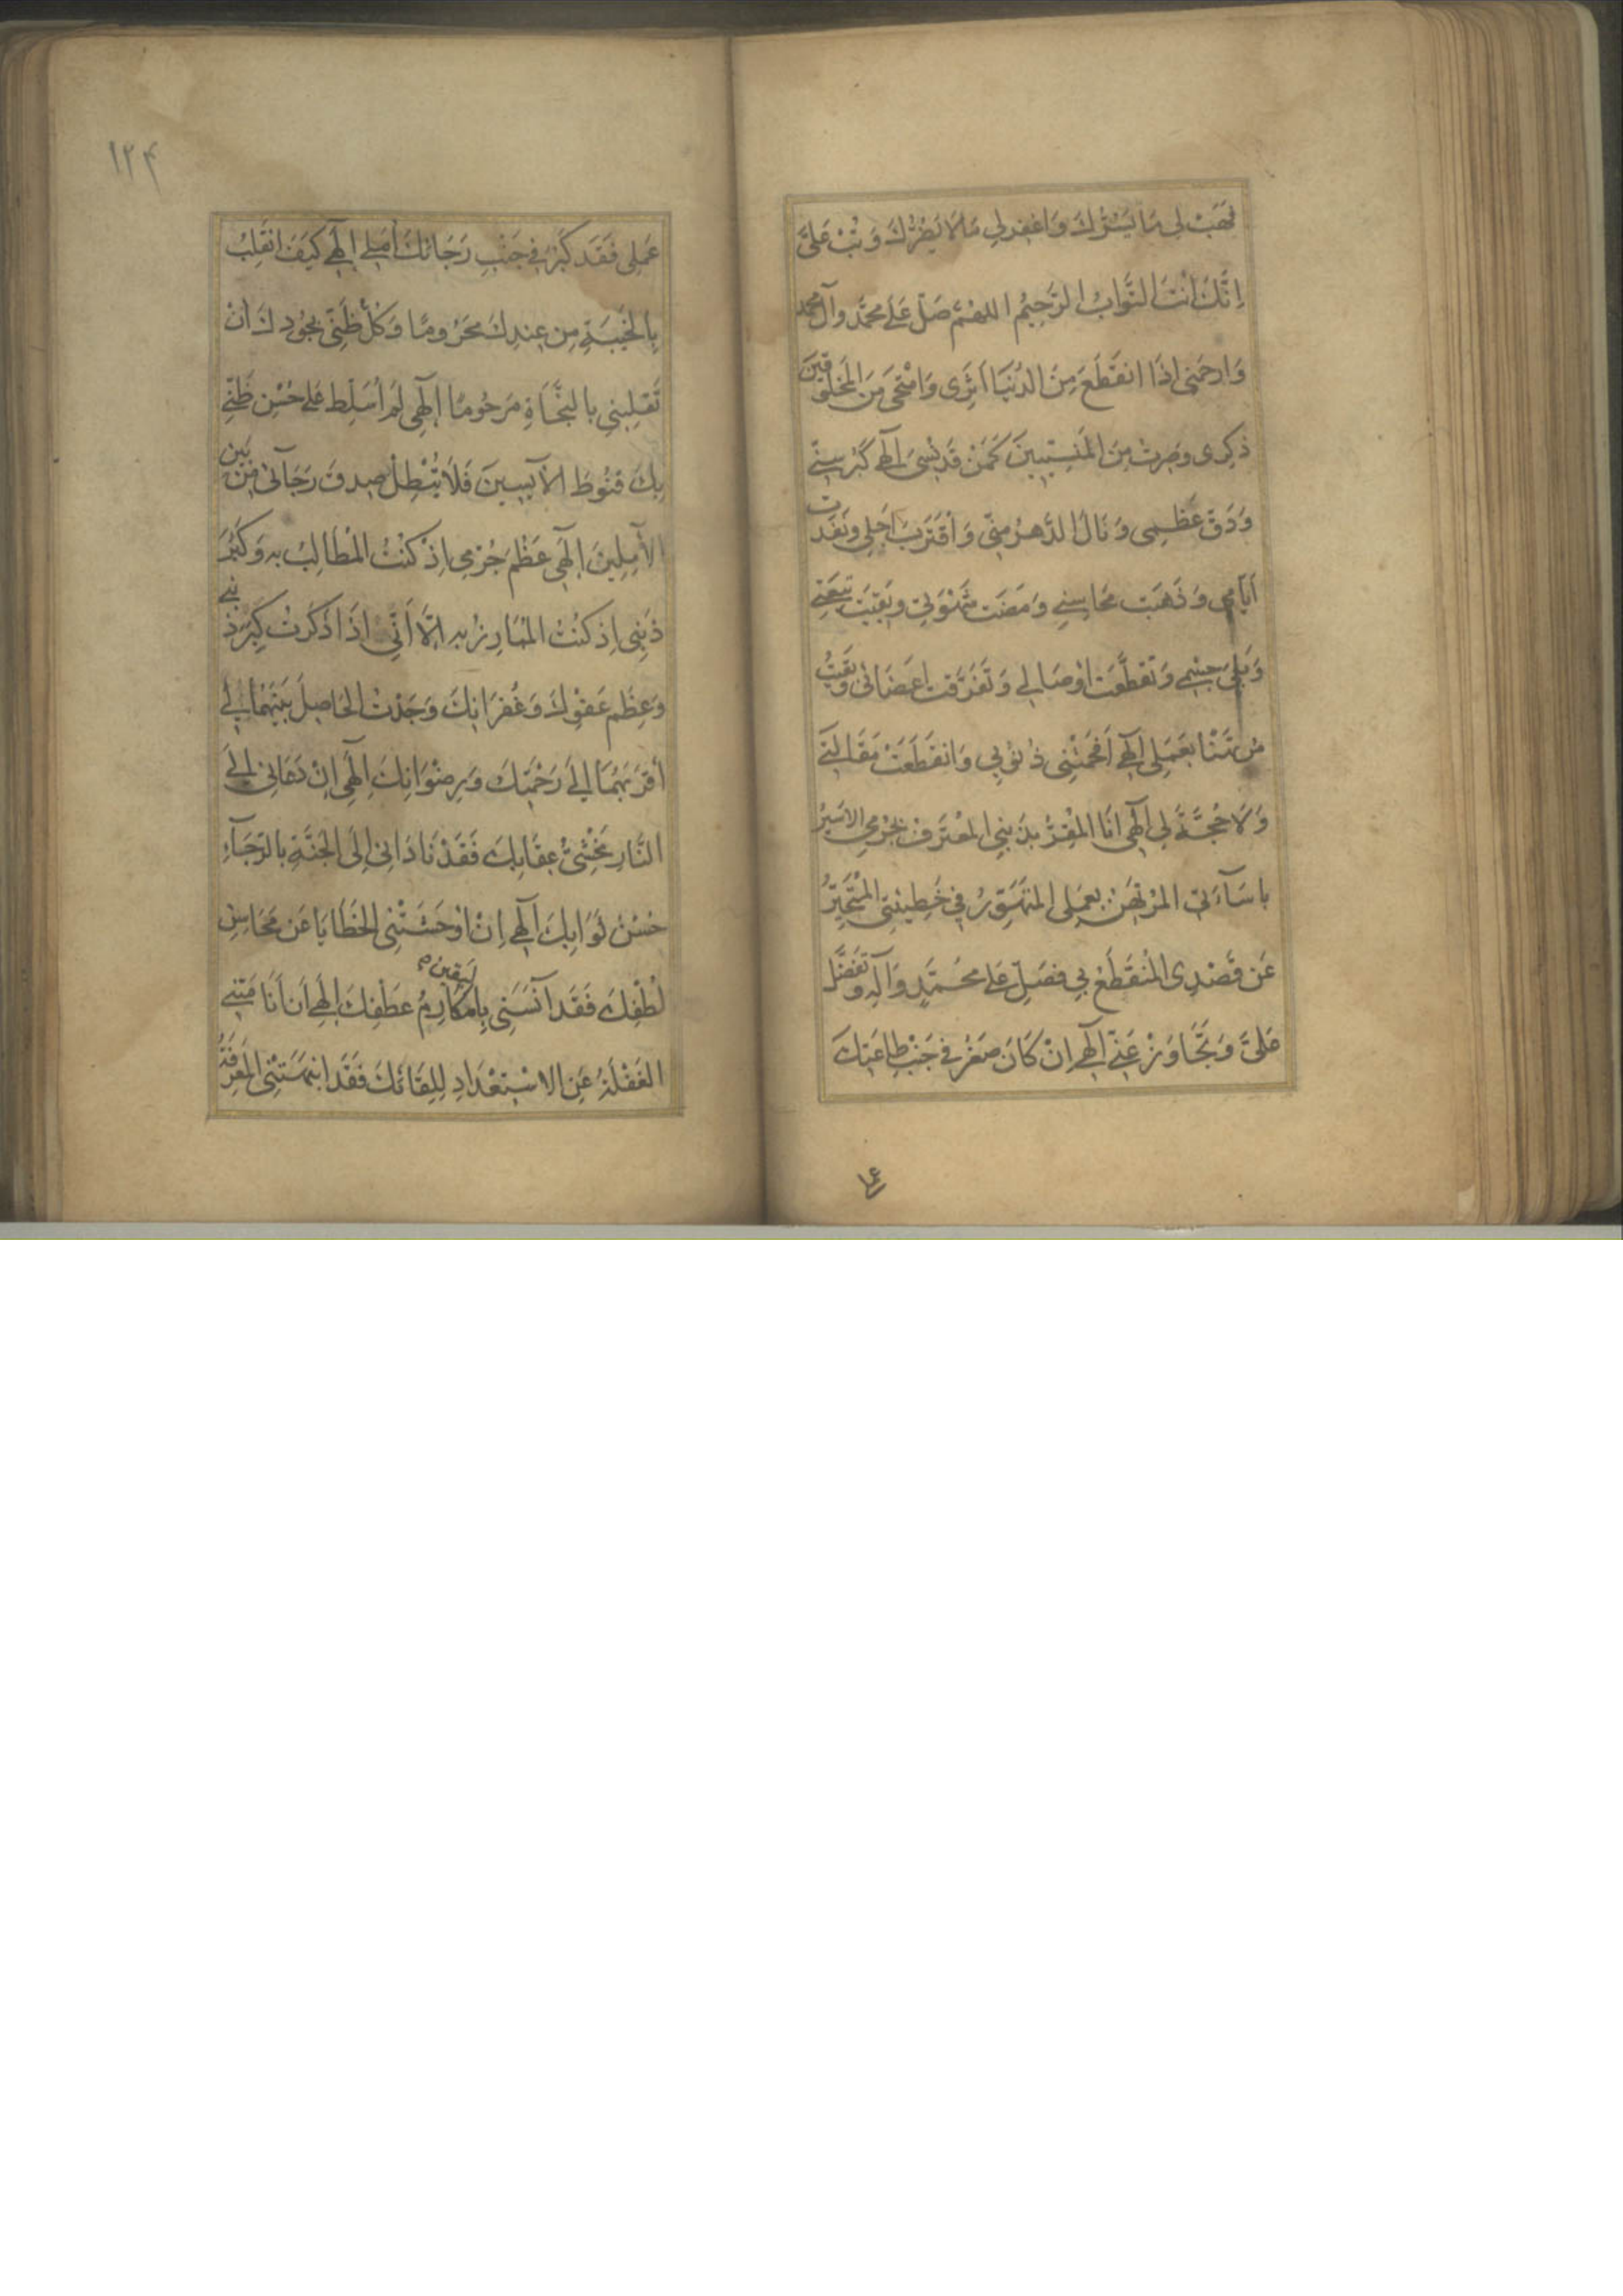 فَهَبْ لِی مَا یَسُرُّكَ وَاغْفِرْ لِی مَا لَا یَضُرُّكَ وَتُبْ عَلَیَّ
اِنَّكَ اَنْتَ التَّوَّابُ الرَّحِیْمُ اللهُمَّ صَلِّ عَلَی مُحَمَّدٍ وَآلِ مُحَمَّد
وَارْحَمْنِی اِذَا انْقَطَعَ مِنَ الدُّنْیَا اَثَرِی وَامْتَحَی مِنَ الْمَخْلُوقِیْنَ
ذِكْرِی وَصِرْتُ مِنَ الْمَنْسِیِّیْنَ كَمَنْ قَدْ نُسِیَ اِلٰهِی كَبُرَ سِنِّی
وَدَقَّ عَظْمِی وَنَالَ الدَّهْرُ مِنِّی وَاقْتَرَبَ اَجَلِی وَنَفَدَت
اَیَّامِی وَذَهَبَتْ مَحَاسِنِی وَمَضَتْ شَهْوَتِی وَبَقِیَتْ تَبِعَتِی
وَبَلِیَ جِسْمِی وَتَقَطَّعَتْ اَوْصَالِی وَتَفَرَّقَتْ اَعْضَائِی وَبَقِیْتُ
مُرْتَهَنًا بِعَمَلِی اِلٰهِی اَفْحَمَتْنِی ذُنُوْبِی وَانْقَطَعَتْ مَقَالَتِی
وَلَا حُجَّةَ لِی اِلٰهِی اَنَا الْمُقِرُّ بِذَنْبِی الْمُعْتَرِفُ بِجُرْمِی الْاَسِیْرُ
بِاسَآءَتِی الْمُرْتَهَنُ بِعَمَلِی الْمُتَهَوِّرُ فِی خَطِیْئَتِی الْمُتَحَیِّرُ
عَنْ قَصْدِی الْمُنْقَطَعُ بِی فَصَلِّ عَلَی مُحَمَّدٍ وَآلِهِ وَتَفَضَّلْ
عَلَیَّ وَتَجَاوَزْ عَنِّی اِلٰهِی اِنْ كَانَ صَغُرَ فِی جَنْبِ طَاعَتِكَ
۱۲۴
عَمَلِی فَقَدْ كَبُرَ فِی جَنْبِ رَجَائِكَ اَمَلِی اِلٰهِی كَیْفَ اَنْقَلِبُ
بِالْخَیْبَةِ مِنْ عِنْدِكَ مَحْرُومًا وَكُلُّ ظَنِّی بِجُودِكَ اَنْ
تَقْلِبَنِی بِالنَّجَاةِ مَرْحُومًا اِلٰهِی لَمْ اُسَلِّطْ عَلَی حُسْنِ ظَنِّی
بِكَ قُنُوطَ الْآیِسِیْنَ فَلَا تُبْطِلْ صِدْقَ رَجَآئِی مِنْ بَیْنِ
الْآمِلِیْنَ اِلٰهِی عَظُمَ جُرْمِی اِذْ كُنْتُ الْمُطَالِبُ بِهِ وَكَبُرَ
ذَنْبِی اِذْ كُنْتُ الْمُبَارِزُ بِهِ اِلَّا اَنِّی اِذَا ذَكَرْتُ كِبَرَ ذَنْبِی
وَعِظَمَ عَفْوِكَ وَغُفْرَانِكَ وَجَدْتُ الْحَاصِلَ بَیْنَهُمَا لِی
اَقْرَبَهُمَا اِلَی رَحْمَتِكَ وَرِضْوَانِكَ اِلٰهِی اِنْ دَعَانِی اِلَی
النَّارِ مَخْشِیُّ عِقَابِكَ فَقَدْ نَادَانِی اِلَی الْجَنَّةِ بِالرَّجَآءِ
حُسْنُ ثَوَابِكَ اِلٰهِی اِنْ اَوْحَشَتْنِی الْخَطَایَا عَنْ مَحَاسِنِ
لُطْفِكَ فَقَدْ آنَسَنِی بِالْیَقِیْنِ مَكَارِمُ عَطْفِكَ اِلٰهِی اَنْ اَنَامَتْنِی
الْغَفْلَةُ عَنِ الْاسْتِعْدَادِ لِلِقَائِكَ فَقَدْ اَنْبَهَتْنِی الْمَعْرِفَةُ